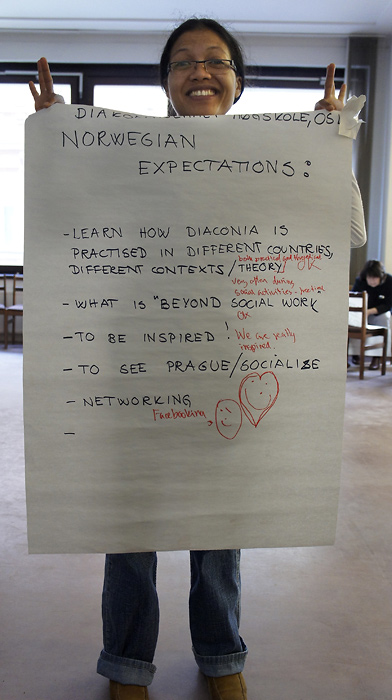 HØGSKOLE, OS
NORWEGIAN
EXPECTATIONS:
- LEARN HOW DIACONIA IS
PRACTISED IN DIFFERENT COUNTRIES,
both practical and theoretical
DIFFERENT CONTEXTS/THEORY/ OK
very often during
social activities - practical
- WHAT IS "BEYOND SOCIAL WORK
OK
- TO BE INSPIRED! We are really
inspired.
- TO SEE PRAGUE/SOCIALIZE
- NETWORKING
Facebooking
-